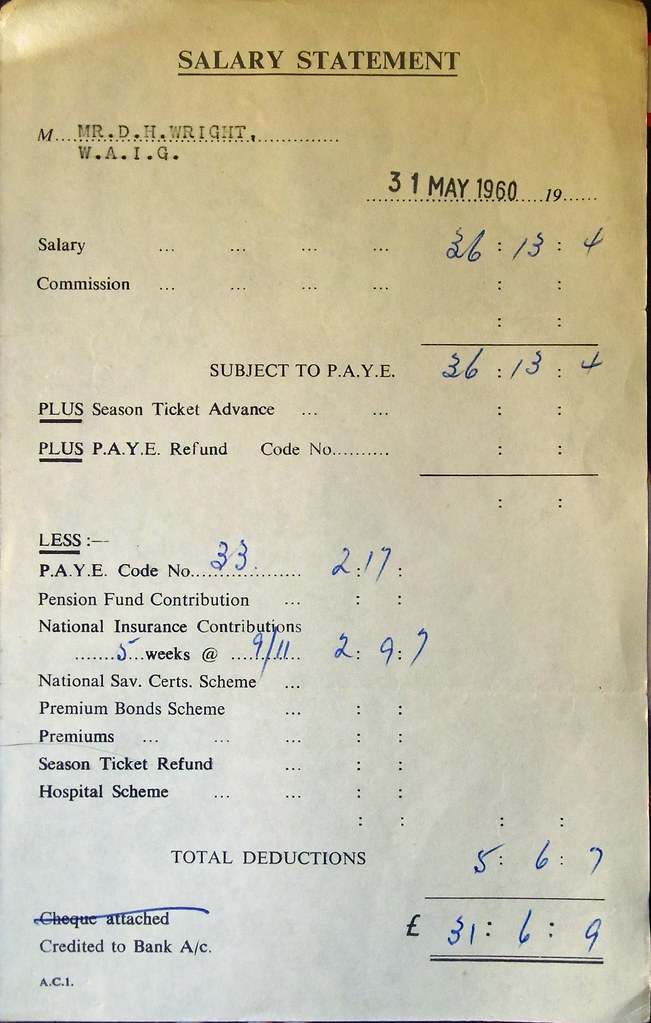 SALARY STATEMENT
M.... MR.D.H.WRIGHT,..............
W.A.I.G.
31 MAY 1960 19......
Salary ... ... ... ... 36 : 13 : 4
Commission ... ... ... ... : :
: :
SUBJECT TO P.A.Y.E. 36 : 13 : 4
PLUS Season Ticket Advance ... ... : :
PLUS P.A.Y.E. Refund Code No.......... : :
: :
LESS :—
P.A.Y.E. Code No....33............ 2 : 17 :
Pension Fund Contribution ... : :
National Insurance Contributions
.......5...weeks @ ....9/11.... 2 : 9 : 7
National Sav. Certs. Scheme ...
Premium Bonds Scheme ... : :
Premiums ... ... ... : :
Season Ticket Refund ... : :
Hospital Scheme ... ... : :
: : : :
TOTAL DEDUCTIONS 5 : 6 : 7
Cheque attached £ 31 : 6 : 9
Credited to Bank A/c.
A.C.1.